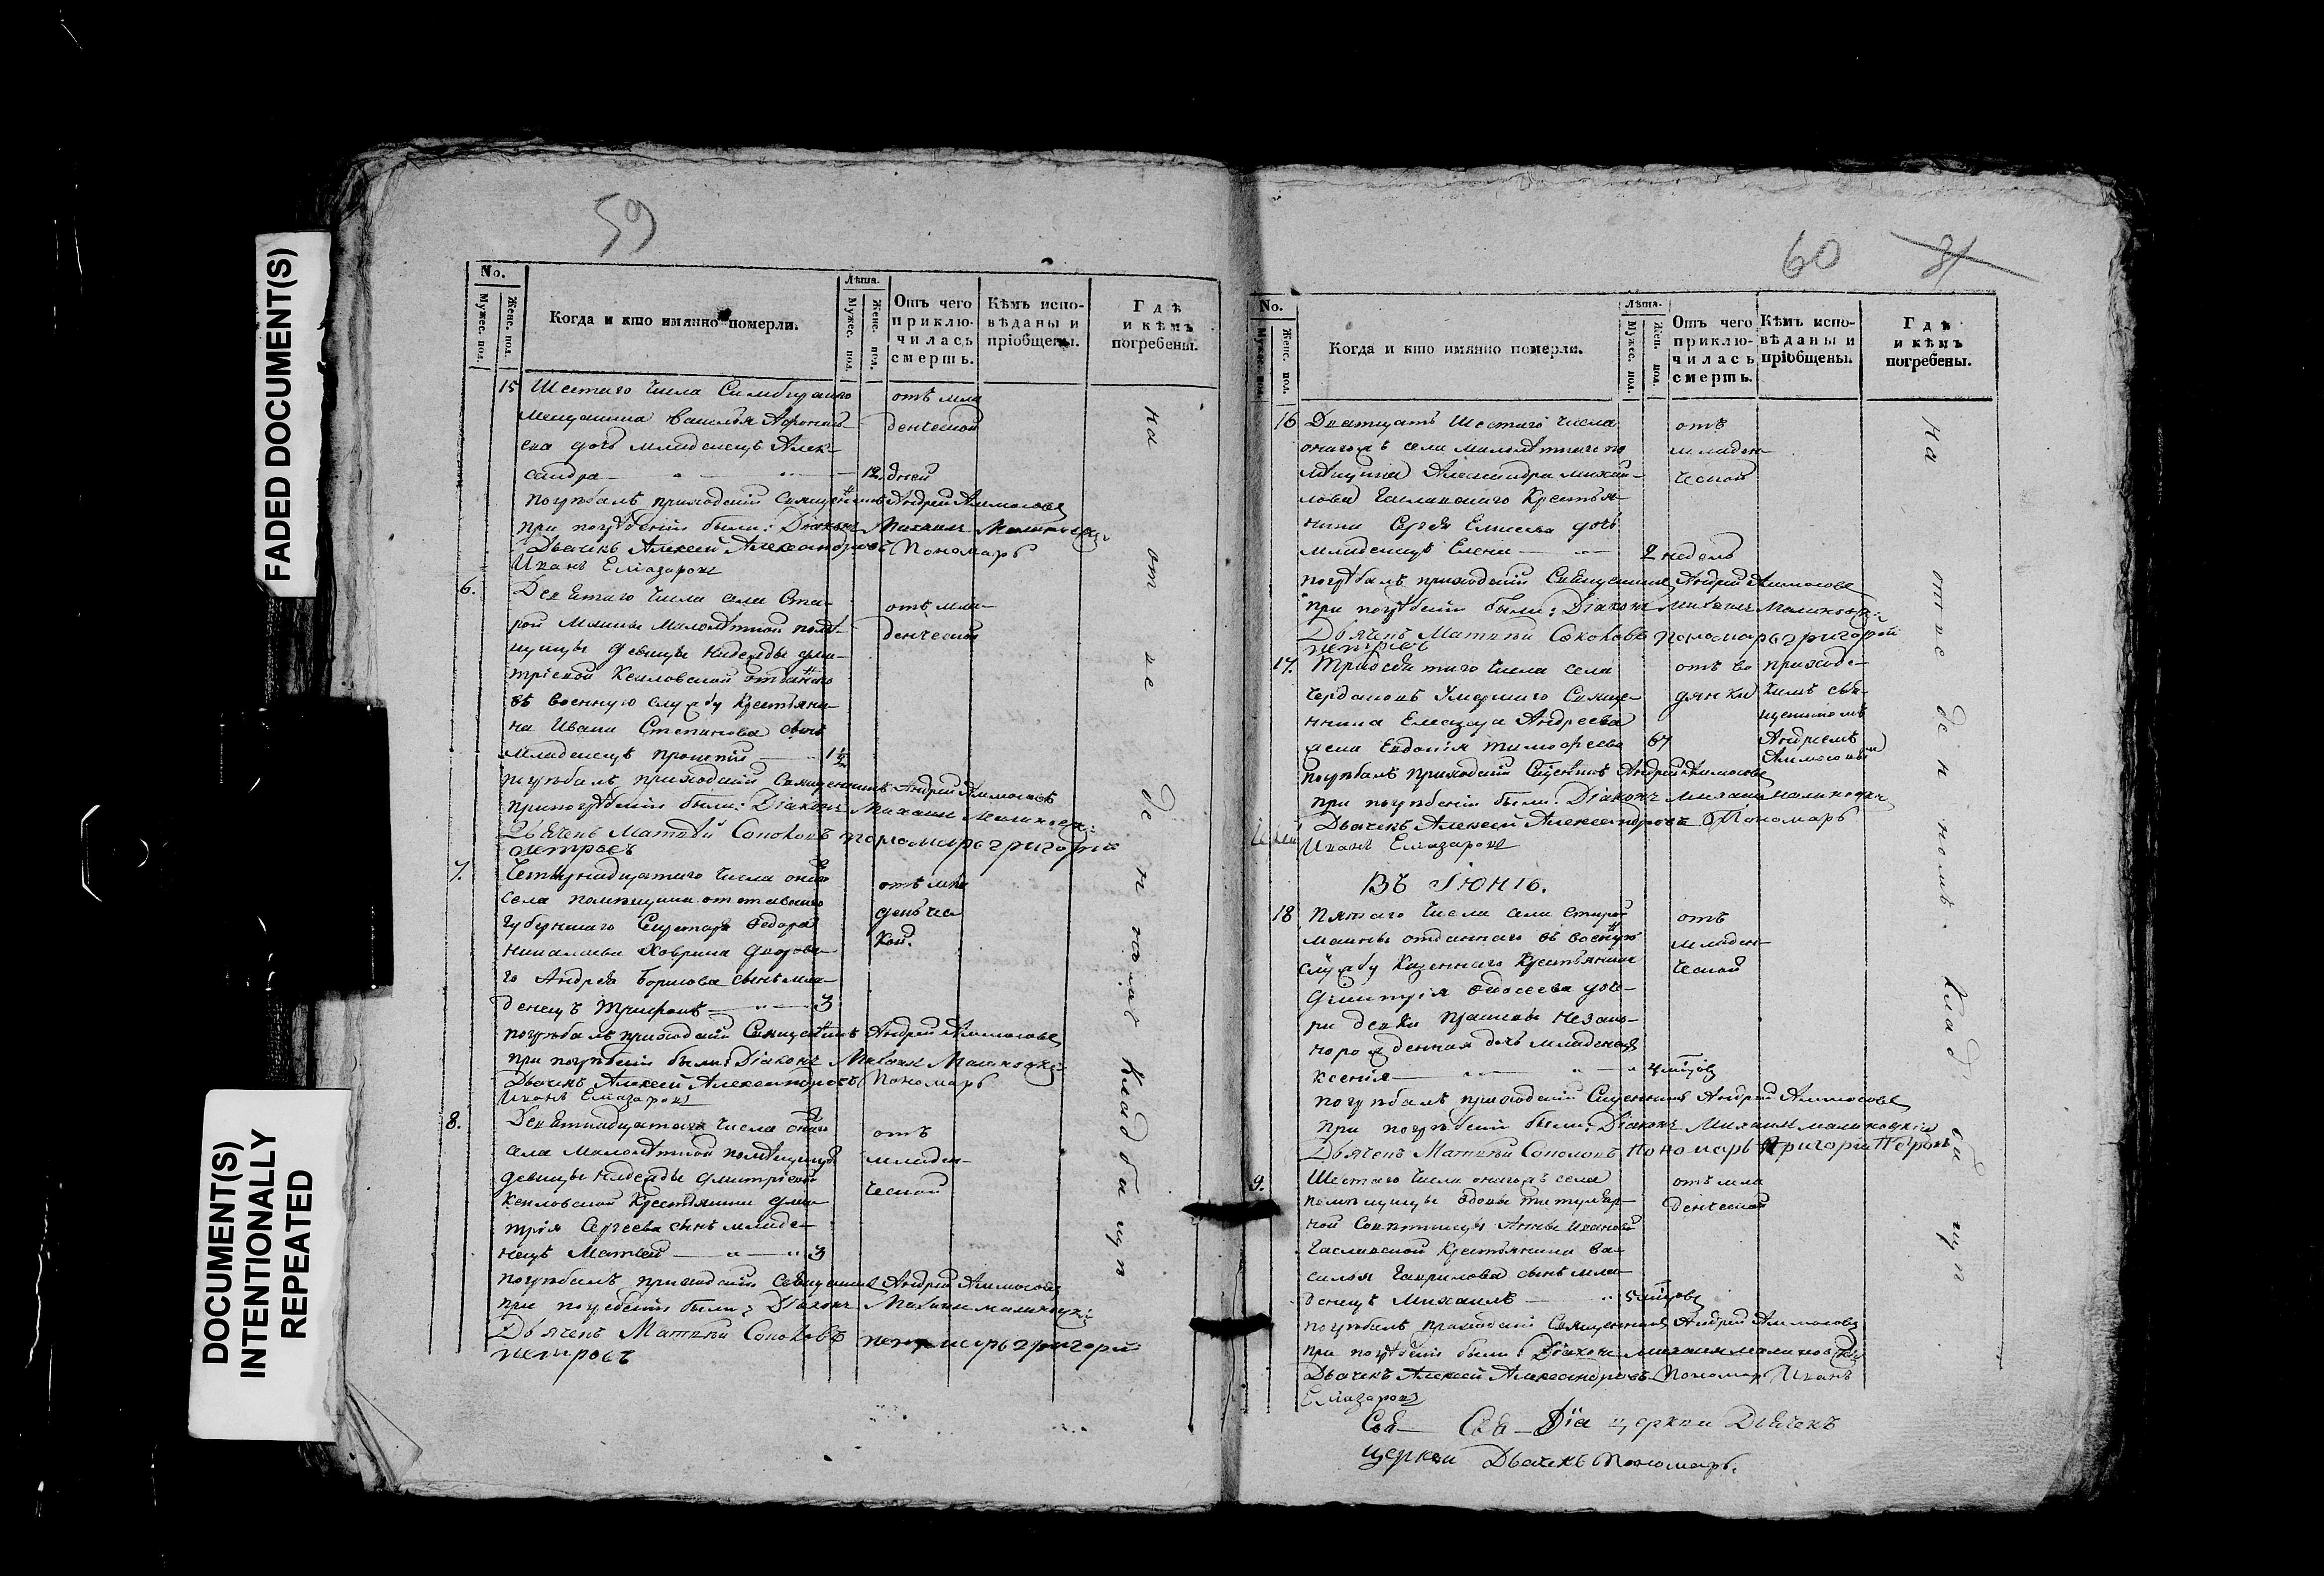 FADED DOCUMENT(S)
DOCUMENT(S)
INTENTIONALLY
REPEATED
59
No.
Мужес. пол.
Женс. пол.
Когда и кто имянно померли.
Лѣта.
Мужес. пол.
Женс. пол.
Отъ чего приклю-чилась смерть.
Кѣмъ испо-вѣданы и пріобщены.
Гдѣ и кѣмъ погребены.
15 Шестаго числа Симбирскаго отъ мла
мещанина Василья Афонась- денческой
ева дочь младенецъ Алек-
сандра 12 дней
погребалъ приходскій Священникъ Андрей Алмосовъ
при погребеніи были: Діаконъ Михаилъ Малиновскій
Дьячекъ Алексей Александровъ Пономарь
Иванъ Елиазаровъ
6. Девятаго числа села Ста- отъ мла-
рой Маины малолѣтной помѣ- денческой
щицы девицы Надежды Дми-
тріевой отданнаго
въ военную службу Крестьяни-
на Ивана Степанова сынъ
младенецъ 1½
погребалъ приходскій Священникъ Андрей Алмосовъ
при погребеніи были: Діаконъ Михаилъ Малиновскій
Дьячекъ Матвѣй Соколовъ пономарь григорій
петровъ
7. Четырнадцатаго числа онаго отъ мла
села помещика отставнаго денчес
Губернскаго Секретаря Федора кой.
Николаева дворова-
го Андрея Борисова сынъ мла-
денецъ Трифонъ 3
погребалъ приходскій Священникъ Андрей Алмосовъ
при погребеніи были: Діаконъ Михаилъ Малиновскій
Дьячекъ Алексей Александровъ Пономарь
Иванъ Елиазаровъ
8. Девятнадцатаго числа онаго отъ
села малолѣтной помѣщицы младен-
девицы Надежды Дмитріевой ческой
Крестьянина Дми-
трія Сергеева сынъ младе-
нецъ Матвей 3
погребалъ приходскій Священникъ Андрей Алмосовъ
при погребеніи были: Діаконъ Михаилъ Малиновскій
Дьячекъ Матвѣй Соколовъ пономарь григорій
петровъ
на от ве де н номъ кладбищѣ
60
No.
Мужес. пол.
Женс. пол.
Когда и кто имянно померли.
Лѣта.
Мужес. пол.
Жен. пол.
Отъ чего приклю-чилась смерть.
Кѣмъ испо-вѣданы и пріобщены.
Гдѣ и кѣмъ погребены.
16 Дватцать Шестаго числа отъ
онагожъ села малолѣтнаго по младен-
мѣщика Александра Михай- ческой
лова Крестья-
нина Сергея Елисеева дочь
младенецъ Елена 2 недель
погребалъ приходскій Священникъ Андрей Алмосовъ
при погребеніи были: Діаконъ Михаилъ Малиновскій
Дьячекъ Матвѣй Соколовъ пономарь григорій
петровъ
17. Тридесятаго числа села отъ во приходс-
умершаго Священ- дянки кимъ свя-
нника Елиазара Андреева щенникомъ
жена Евдокія Тимофеева 67 Андреемъ
Алмосовымъ
погребалъ приходскій Священникъ Андрей Алмосовъ
при погребеніи были: Діаконъ Михаилъ Малиновскій
Дьячекъ Алексей Александровъ Пономарь
Иванъ Елиазаровъ
Въ Іюнѣ.
18 Пятаго числа села Старой отъ
Маины отданнаго въ военную младен-
службу Казеннаго Крестьянина ческой
Дмитрія Федосеева доче-
ри девки незако-
норожденная дочь младенецъ
Ксенія
погребалъ приходскій Священникъ Андрей Алмосовъ
при погребеніи были: Діаконъ Михаилъ Малиновскій
Дьячекъ Матвѣй Соколовъ Пономарь Григорій Петровъ
9. Шестаго числа онагожъ села отъ мла
помещицы вдовы титуляр- денческой
ной Советницы Анны Ивановой
Крестьянина Ва-
силья Гаврилова сынъ мла-
денецъ Михаилъ
погребалъ приходскій Священникъ Андрей Алмосовъ
при погребеніи были: Діаконъ Михаилъ Малиновскій
Дьячекъ Алексей Александровъ Пономарь Иванъ
Елиазаровъ
на от ве де н номъ кладбищѣ
Свя- Свя- Діа церкви Дьячекъ
церкви Дьячекъ Пономарь.